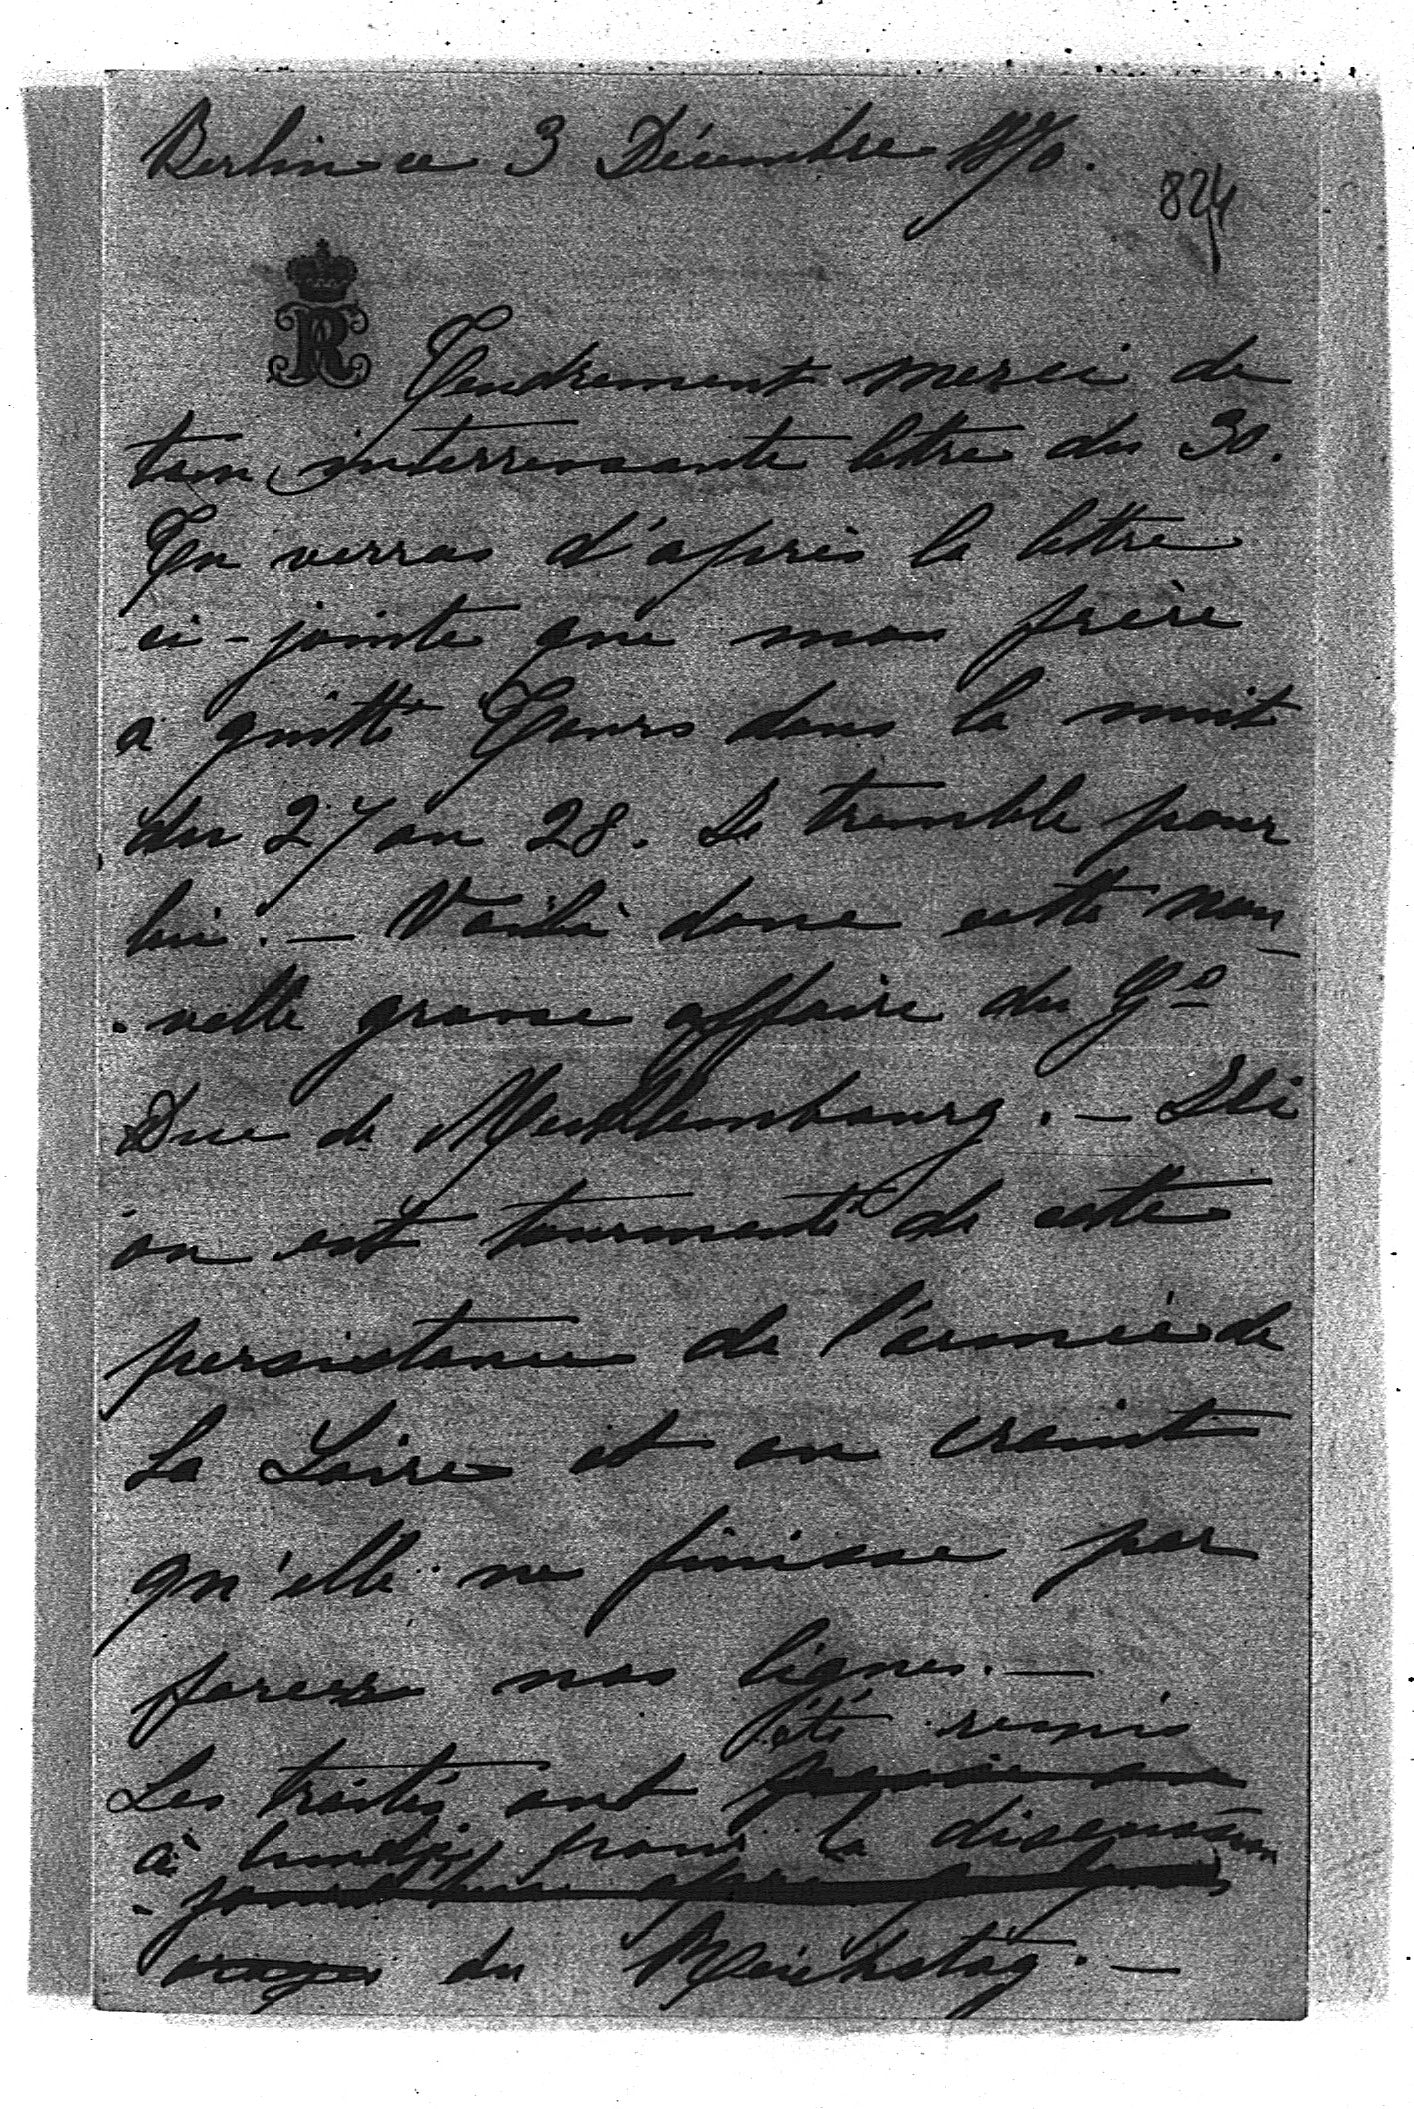 Berlin ce 3 Décembre 1870.
824
R
Tendrement merci de
ton interressante lettre du 30.
Tu verras d'après la lettre
ci-jointe que mon frère
a quitté Tours dans la nuit
du 27 au 28. Je tremble pour
lui. — Voilà donc cette nou-
velle grave affaire du Gd
Duc de Mecklembourg. — Ici
on est tourmenté de cette
persistance de l'armée de
la Loire et on craint
qu'elle ne finisse par
forcer nos lignes. —
été remis
Les traités ont
à lundi pour la discussion
du Reichstag. —